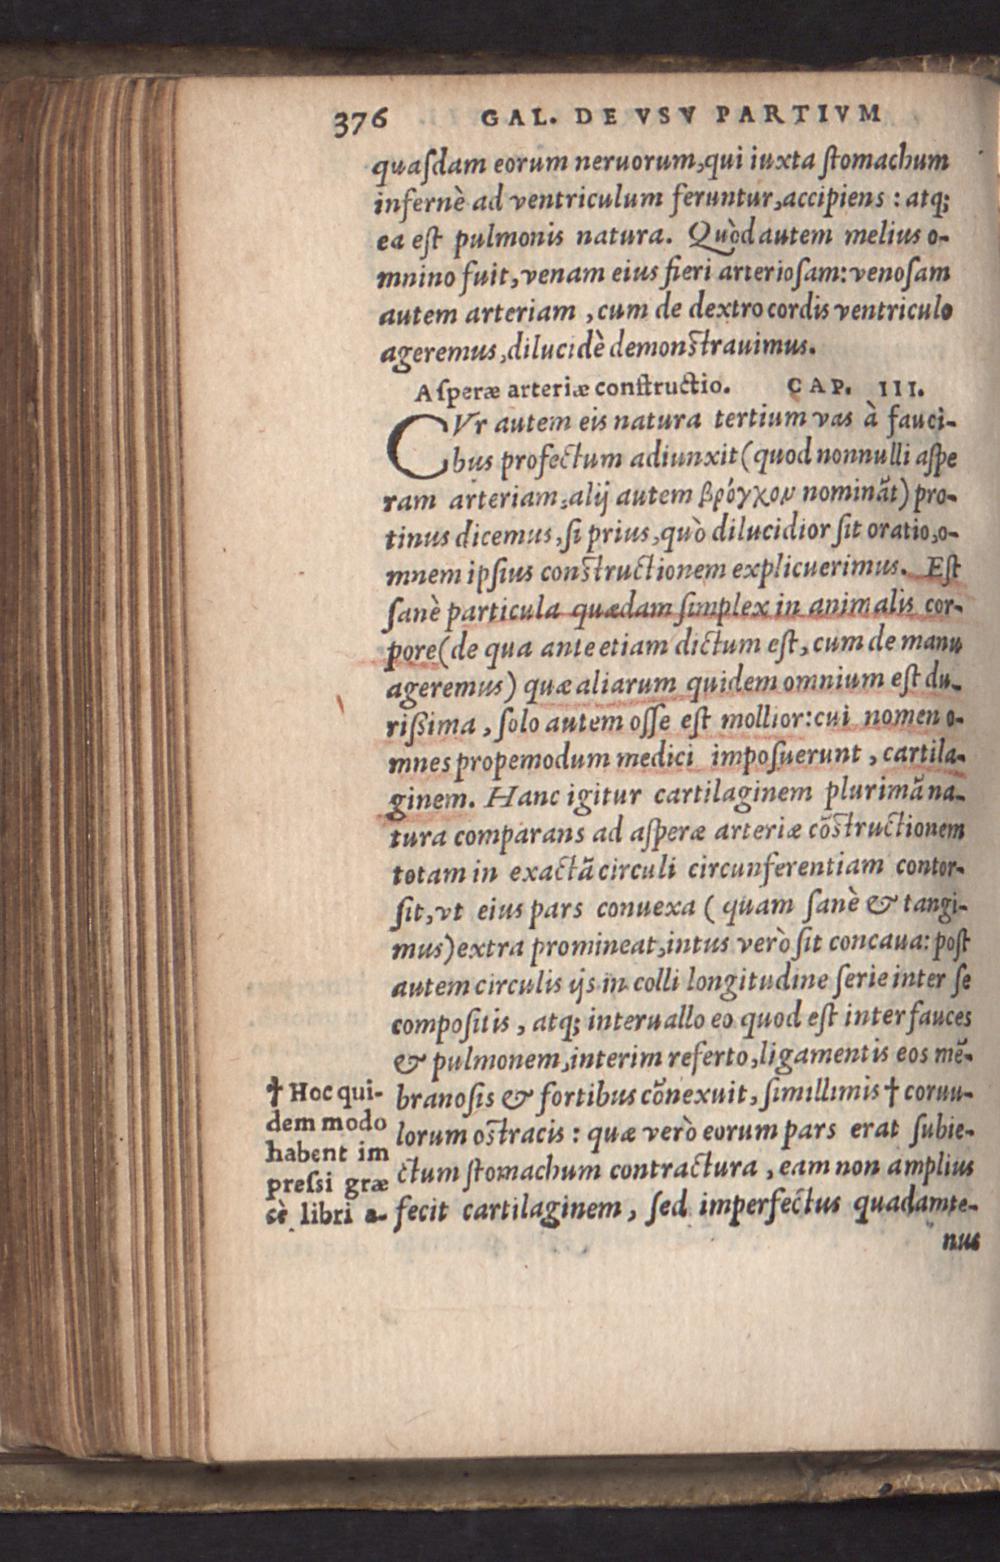 376 GAL. DE VSV PARTIVM
quaſdam eorum neruorum,qui iuxta ſtomachum
infernè ad ventriculum feruntur,accipiens : atq;
ea eſt pulmonis natura. Quòd autem melius o-
mnino fuit,venam eius fieri arterioſam: venoſam
autem arteriam ,cum de dextro cordis ventriculo
ageremus,dilucidè demonſtrauimus.
Aſperæ arteriæ conſtructio. CAP. III.
CVr autem eis natura tertium vas à fauci-
bus profectum adiunxit(quod nonnulli aſpe
ram arteriam,alij autem βρόγχον nominãt) pro-
tinus dicemus,ſi prius,quò dilucidior ſit oratio,o-
mnem ipſius conſtructionem explicuerimus. Eſt
ſanè particula quædam ſimplex in animalis cor-
pore(de qua ante etiam dictum eſt, cum de manu
ageremus) quæ aliarum quidem omnium eſt du-
riſsima , ſolo autem oſſe eſt mollior:cui nomen o-
mnes propemodum medici impoſuerunt , cartila-
ginem. Hanc igitur cartilaginem plurimã na-
tura comparans ad aſperæ arteriæ cõſtructionem
totam in exactã circuli circunferentiam contor-
ſit,vt eius pars conuexa ( quam ſanè & tangi-
mus)extra promineat,intus verò ſit concaua: poſt
autem circulis ijs in colli longitudine ſerie inter ſe
compoſitis , atq; interuallo eo quod eſt inter fauces
& pulmonem,interim referto,ligamentis eos mẽ-
branoſis & fortibus cõnexuit, ſimillimis † coruu-
lorum oſtracis : quæ verò eorum pars erat ſubie-
ctum ſtomachum contractura , eam non amplius
fecit cartilaginem, ſed imperfectus quadamte-
nus
† Hoc qui-
dem modo
habent im
preſsi græ
cè libri a-